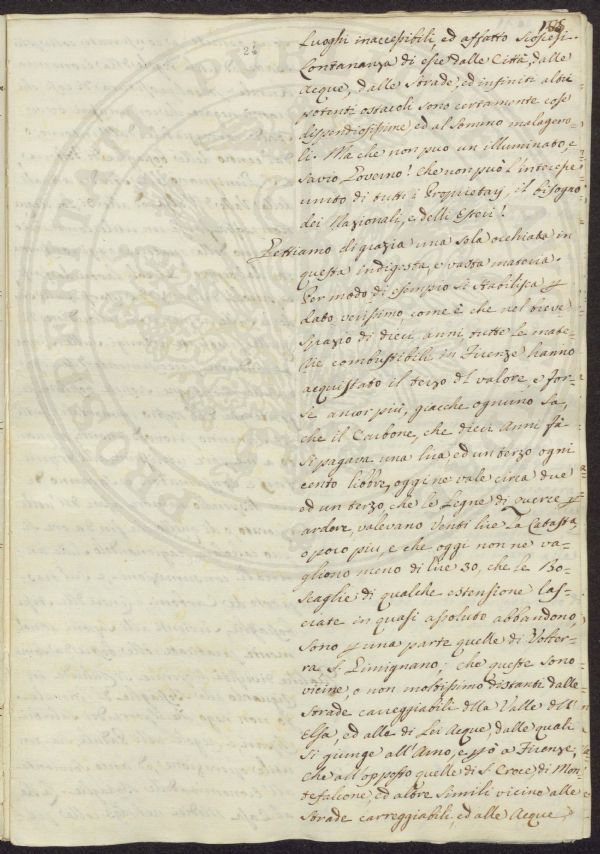 Luoghi inaccessibili, ed affatto scoscesi.
Lontananza di esse dalle Città, dalle
Acque, dalle Strade, ed infiniti altri
potenti ostacoli sono certamente cose
dispendiosissime ed al sommo malagevo=
li. Ma che non può un illuminato, e
savio Governo! che non può l'interesse
unito di tutti i Proprietarj, il bisogno
dei Nazionali, e delli Esteri!
Gettiamo di grazia una sola occhiata in
questa indigesta, e vasta materia.
Per modo di esempio si stabilisca p
dato verissimo come è che nel breve
spazio di dieci anni, tutte le mate=
rie combustibili in Firenze hanno
acquistato il terzo di valore, e for=
se ancor più, giacche ognuno sa,
che il Carbone, che dieci Anni fà
si pagava una lira, ed un terzo ogni
cento libbre, oggi ne vale circa due
ed un terzo, che le Legne di querce p
ardere, valevano venti lire La Catasta,
o poco più, e che oggi non ne va=
gliono meno di lire 30, che le Bo=
scaglie di qualche estensione las=
ciate in quasi assoluto abbandono
sono p una parte quelle di Volter=
ra S. Gimignano; che queste sono
vicine, o non moltissimo distanti dalle
strade carreggiabili della Valle dell'
Elsa, ed alle di Lei Acque, dalle quali
si giunge all'Arno, e p esso a Firenze,
che all'opposto quelle di S. Croce, di Mon
tefalcone, ed altre simili vicino alle
strade carreggiabili, ed alle Acque,